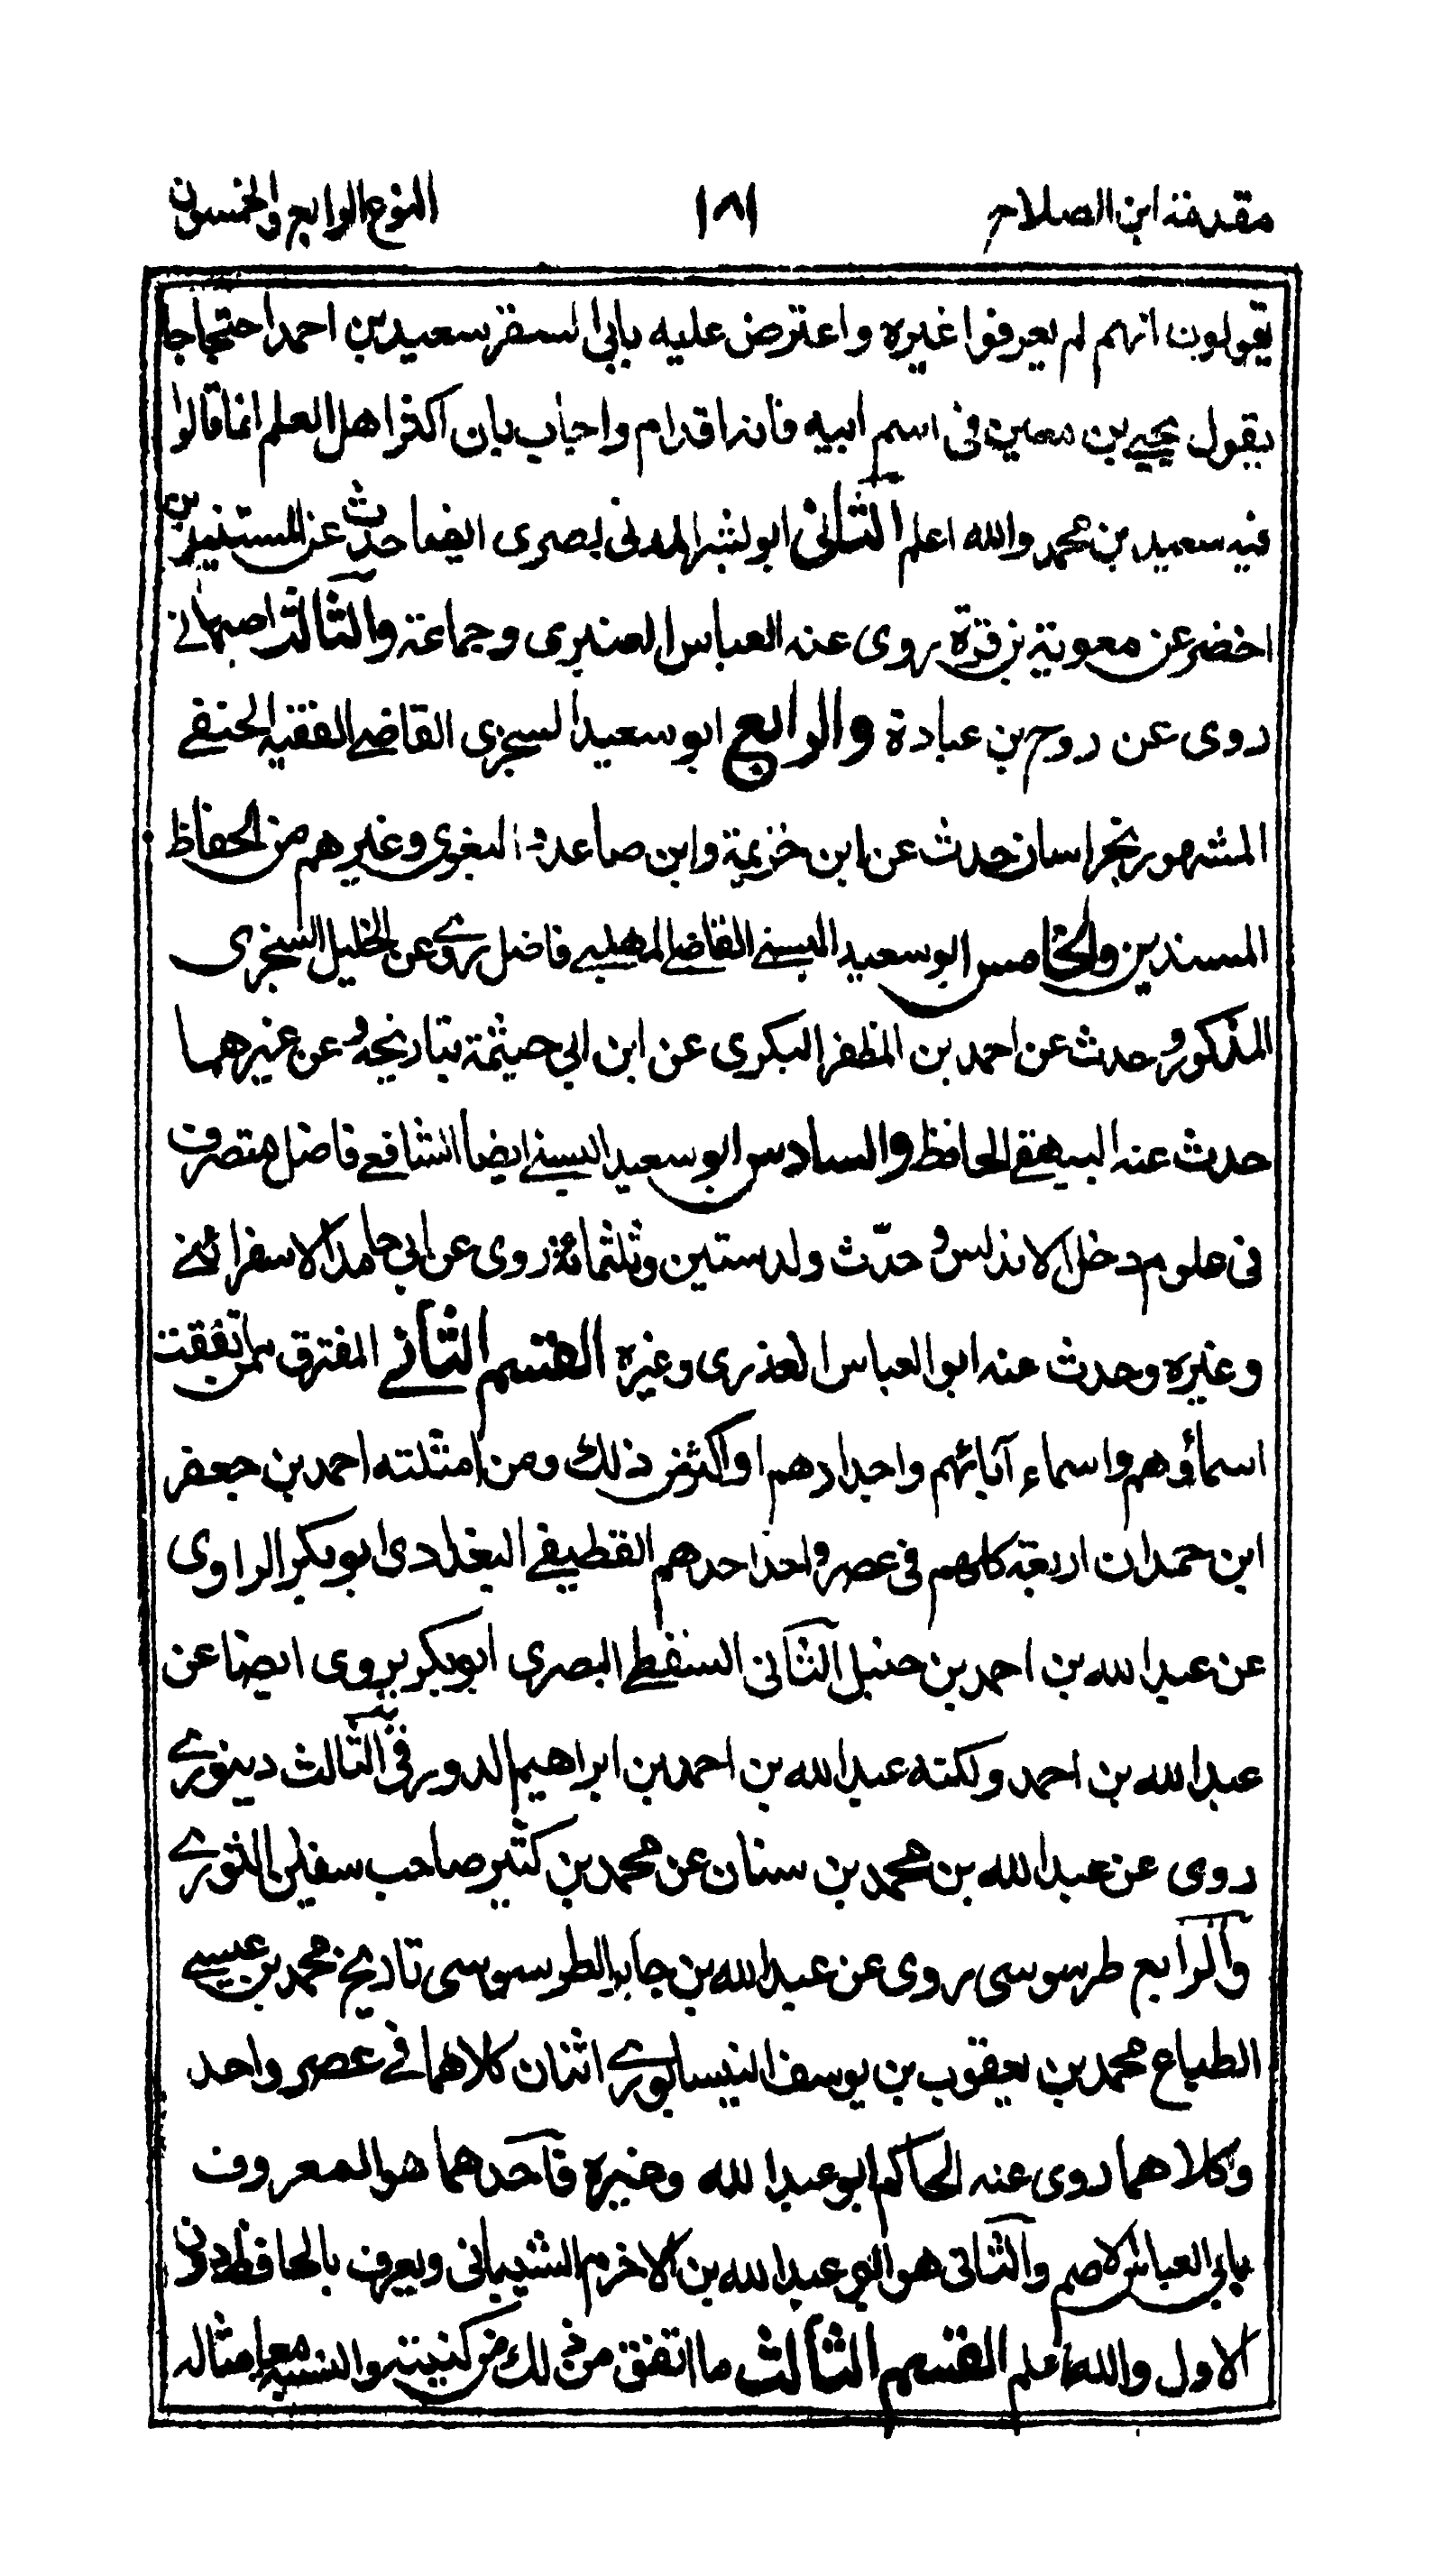 مقدمة ابن الصلاح ١٨١ النوع الرابع والخمسون
يقولون انهم لم يعرفوا غيره واعترض عليه بابى السفر سعيد بن احمد احتجاجا
بقول يحيى بن معين فى اسم ابيه فانه اقدم واجاب بان اكثر اهل العلم انما قالوا
فيه سعيد بن محمد والله اعلم الثانى ابو بشر المدنى بصرى ايضا حدث عن المستنير بن
اخضر عن معوية بن قرة روى عنه العباس العنبرى وجماعة والثالث اصبهانى
روى عن روح بن عبادة والرابع ابو سعيد السجزى القاضى الفقيه الحنفى
المشهور بخراسان حدث عن ابن خزيمة وابن صاعد والبغوى وغيرهم من الحفاظ
المسندين والخامس ابو سعيد البستى القاضى المهلبى فاضل روى عن الخليل السجزى
المذكور وحدث عن احمد بن المظفر البكرى عن ابن ابى خيثمة بتاريخه وعن غيرهما
حدث عنه البيهقى الحافظ والسادس ابو سعيد البستى ايضا الشافعى فاضل متصرف
فى علوم دخل الاندلس وحدّث ولد ستين وثلثمائة روى عن ابى حامد الاسفرائنى
وغيره وحدث عنه ابو العباس العذرى وغيره القسم الثانى المفترق ممن تفقت
اسماؤهم واسماء آبائهم واجدادهم او اكثر من ذلك ومن امثلته احمد بن جعفر
ابن حمدان اربعة كلهم فى عصر واحد احدهم القطيفى البغدادى ابو بكر الراوى
عن عبد الله بن احمد بن حنبل الثانى السقطى البصرى ابو بكر يروى ايضا عن
عبد الله بن احمد ولكنه عبد الله بن احمد بن ابراهيم الدورقى الثالث دينورى
روى عن عبد الله بن محمد بن سنان عن محمد بن كثير صاحب سفين الثورى
والرابع طرسوسى روى عن عبد الله بن جابر الطرسوسى تاريخ محمد بن عيسى
الطباع محمد بن يعقوب بن يوسف النيسابورى اثنان كلاهما فى عصر واحد
وكلاهما روى عنه الحاكم ابو عبد الله وغيره فاحدهما هو المعروف
بابى العباس الاصم والثانى هو ابو عبد الله بن الاخرم الشيبانى ويعرف بالحافظ دون
الاول والله اعلم القسم الثالث ما اتفق من ذلك فى كنيته والنسبة معا مثاله